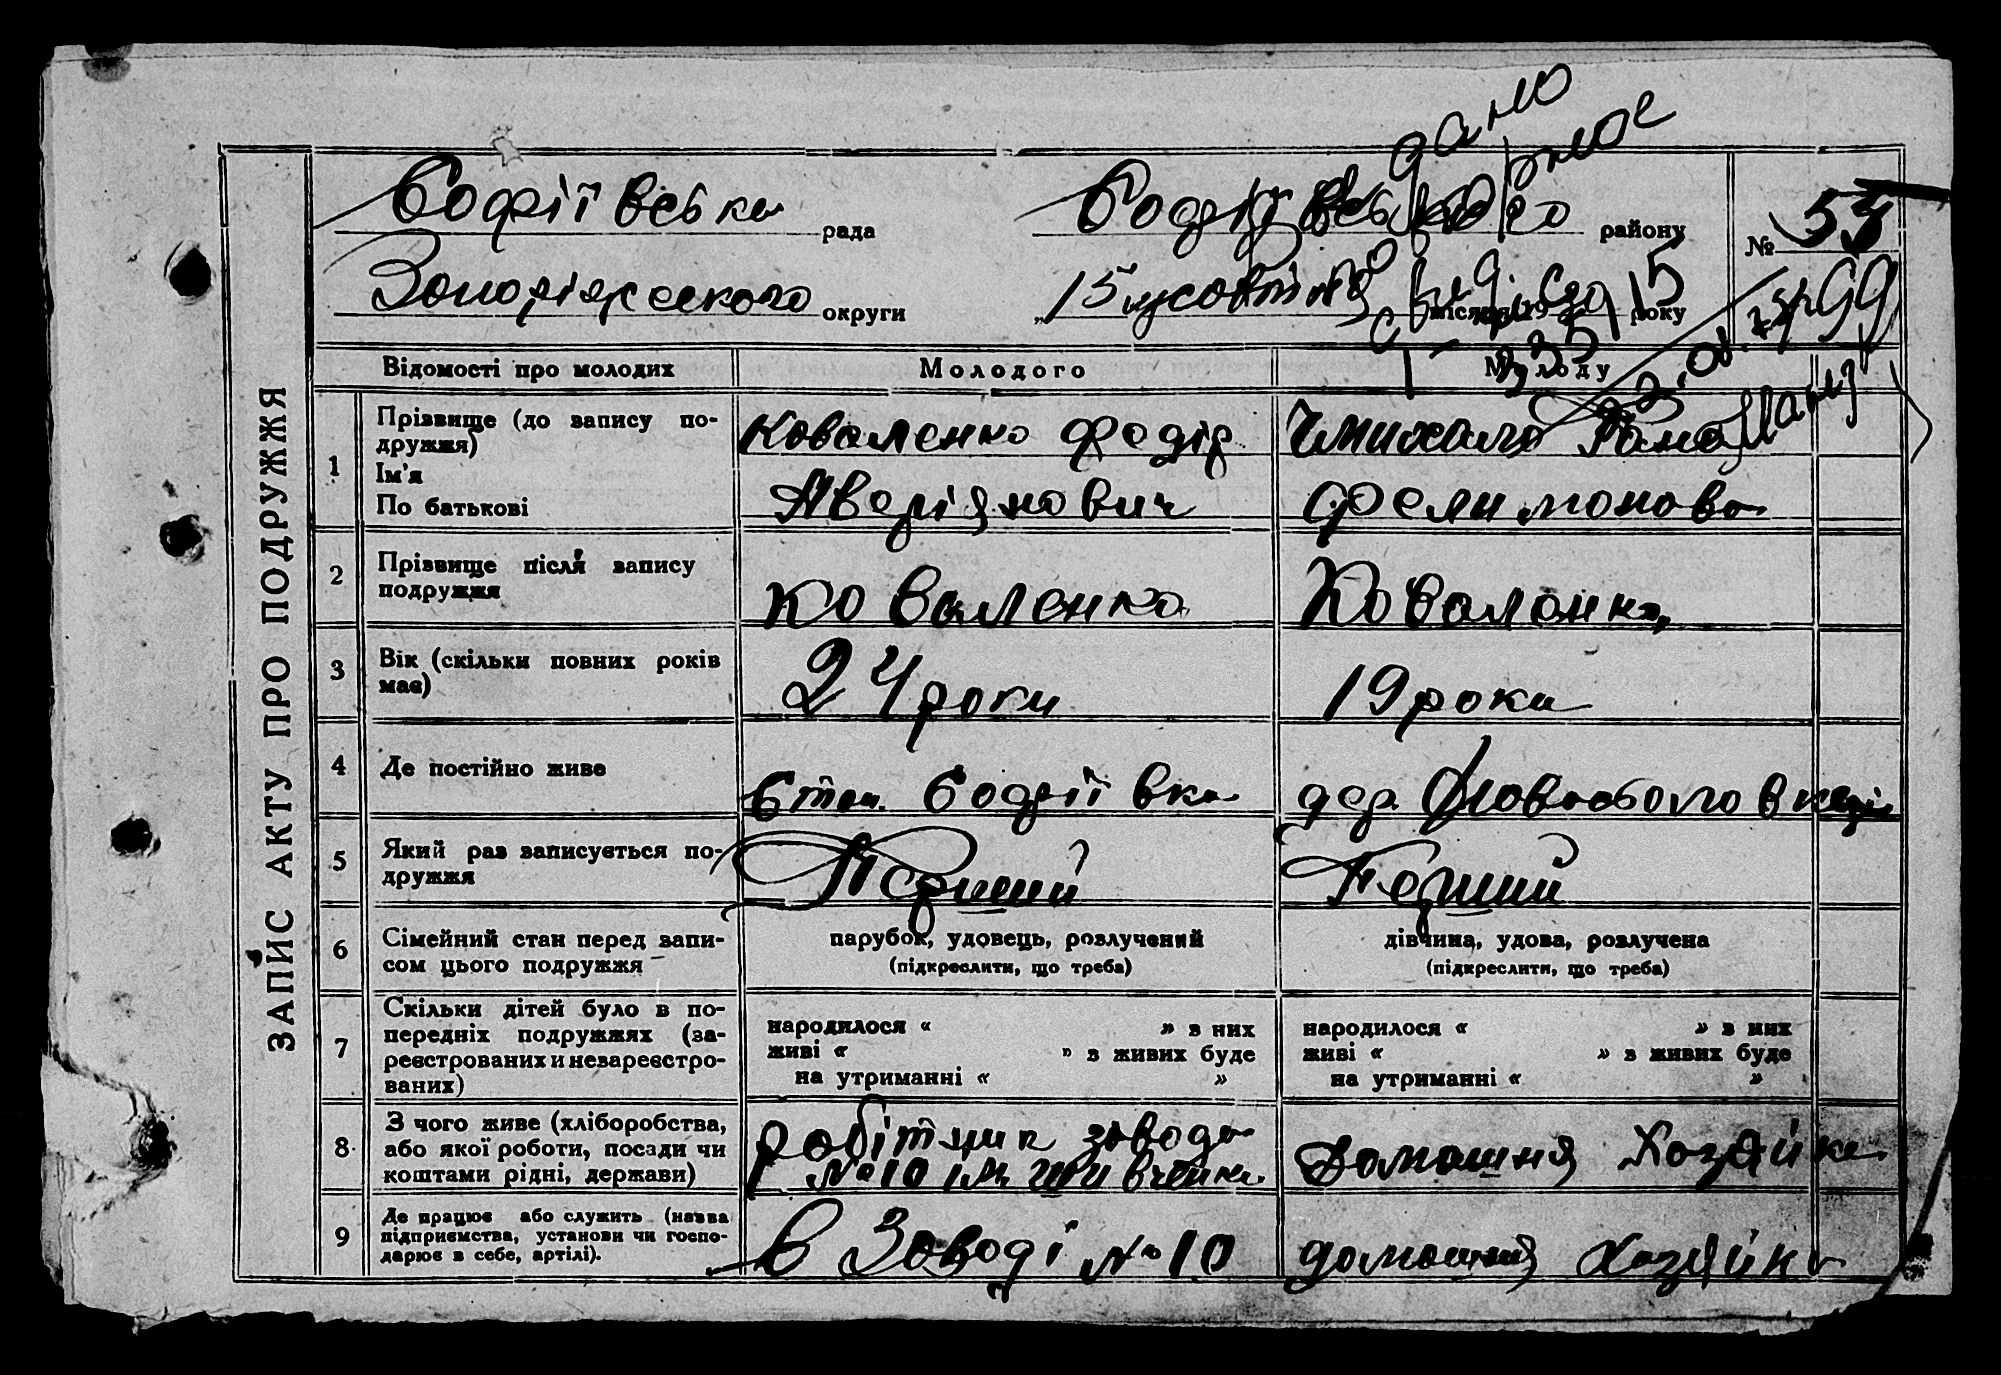 ЗАПИС АКТУ ПРО ПОДРУЖЖЯ
Софіївська рада Софіївського району № 55
Запоріжського округи „15 жовтня місяця 19 року
Відомості про молодих Молодого Молоду
1 Прізвище (до запису по-
дружжя)
Ім'я
По батькові
Коваленко Федір
Аверіянович
Чмихало
Фелимонова
2 Прізвище після запису
подружжя
Коваленко Коваленко
3 Вік (скільки повних років
має)
24 роки 19 роки
4 Де постійно живе
Стан. Софіївка дер.
5 Який раз записується по-
дружжя
Перший Перший
6 Сімейний стан перед запи-
сом цього подружжя
парубок, удовець, розлучений
(підкреслити, що треба)
дівчина, удова, розлучена
(підкреслити, що треба)
7 Скільки дітей було в по-
передніх подружжях (за-
реєстрованих и незареєстро-
ваних)
народилося « » з них
живі « » з живих буде
на утриманні « »
народилося « » з них
живі « » з живих буде
на утриманні « »
8 З чого живе (хліборобства,
або якої роботи, посади чи
коштами рідні, держави)
робітник завода
№ 10 ім.
Домашня Хозяйка
9 Де працює або служить (назва
підприємства, установи чи госпо-
дарює в себе, артілі).
в Заводі № 10 домашня Хозяйка